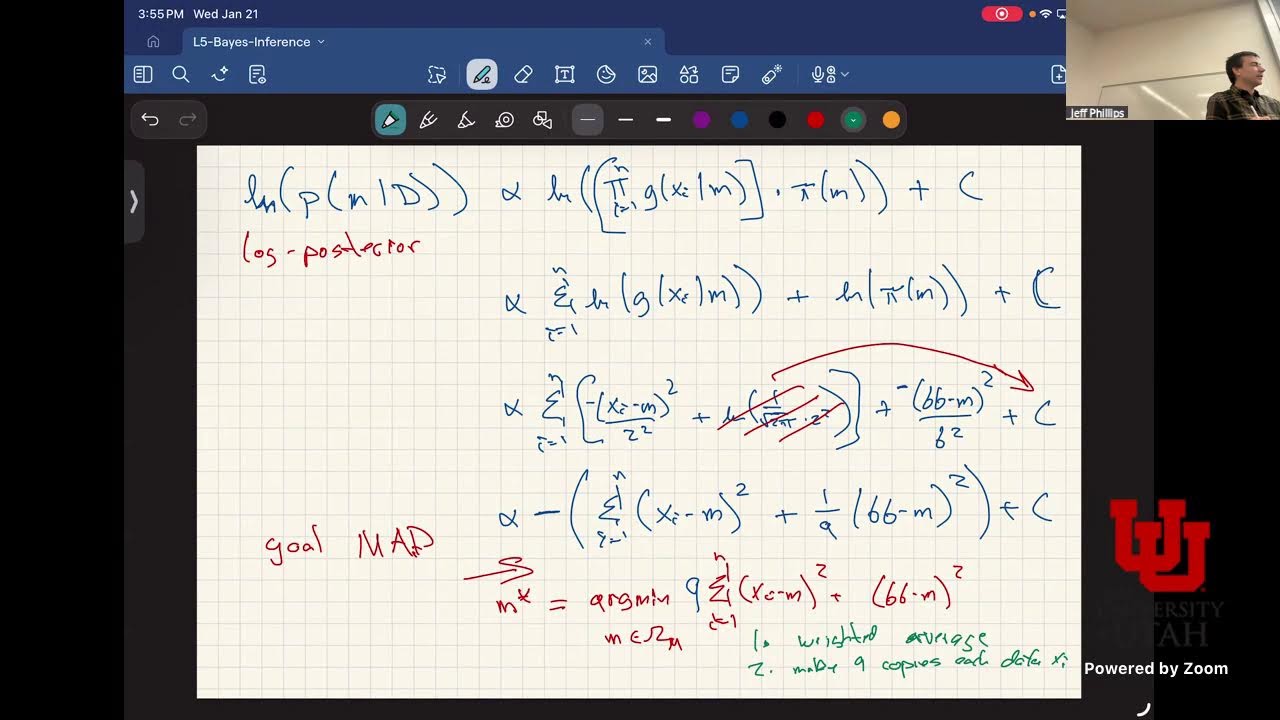 3:55PM Wed Jan 21
L5-Bayes-Inference
Jeff Phillips
ln(p(m|D)) ∝ ln([∏_{i=1}^{n} g(x_i|m)] · π(m)) + C
log-posterior
∝ Σ_{i=1}^{n} ln(g(x_i|m)) + ln(π(m)) + C
∝ Σ_{i=1}^{n} [-(x_i-m)²/2² + ln(1/√2π·2²)] + -(66-m)²/6² + C
∝ -(Σ_{i=1}^{n} (x_i-m)² + 1/9 (66-m)²) + C
goal MAP
⇒ m* = argmin 9 Σ_{i=1}^{n} (x_i-m)² + (66-m)²
m ∈ Ω_M
1. weighted average
2. make 9 copies each data x_i
UNIVERSITY
UTAH
Powered by Zoom